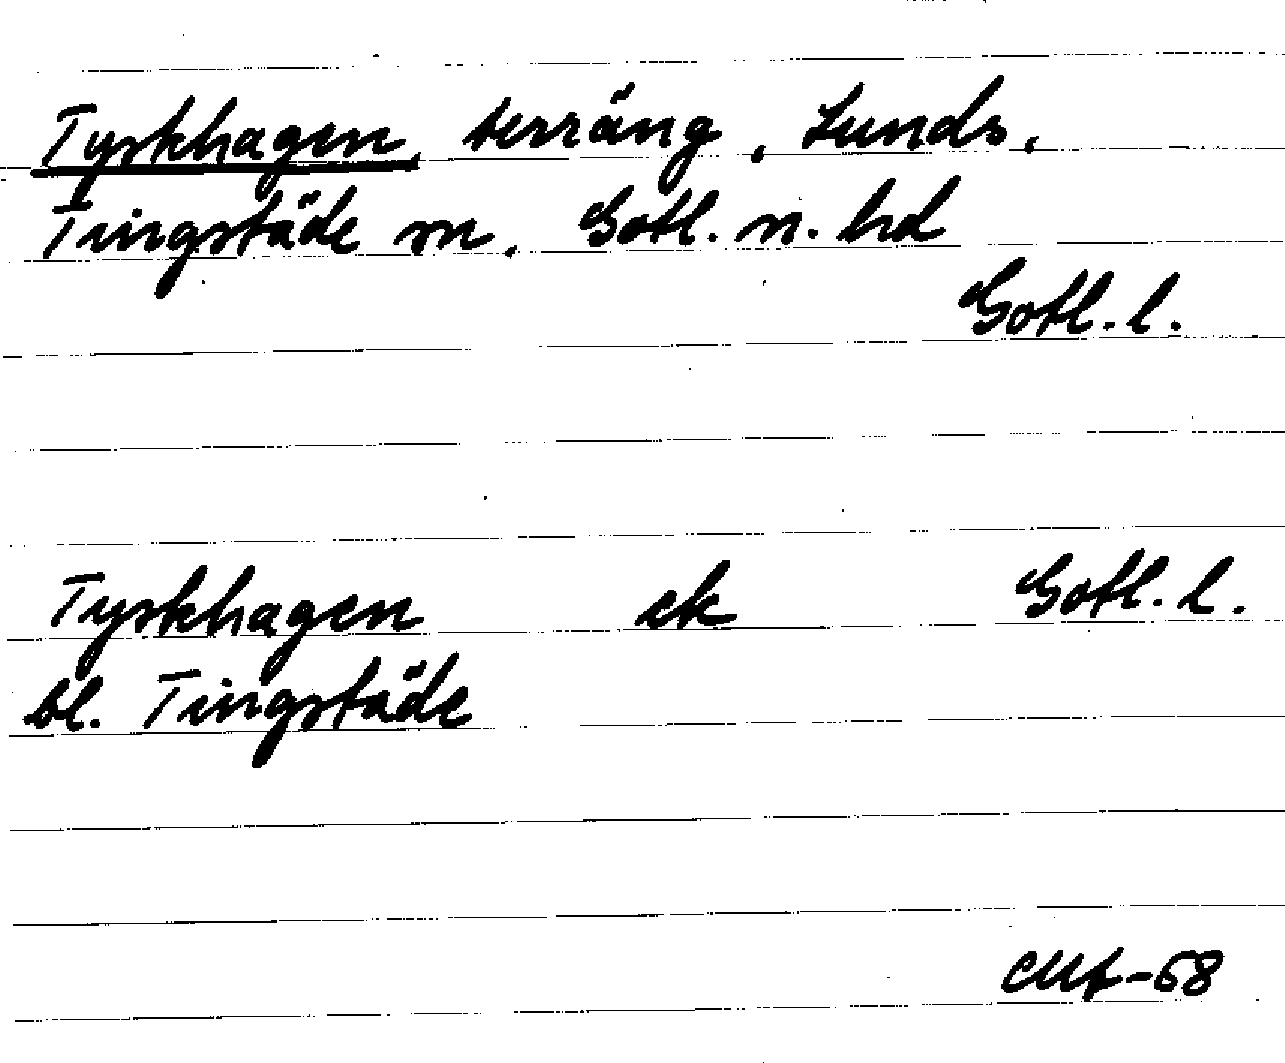 Tyskhagen, terräng, Lunds,
Tingstäde sn. Gotl. n. hd
Gotl. l.
Tyskhagen ek Gotl. l.
bl. Tingstäde
-68